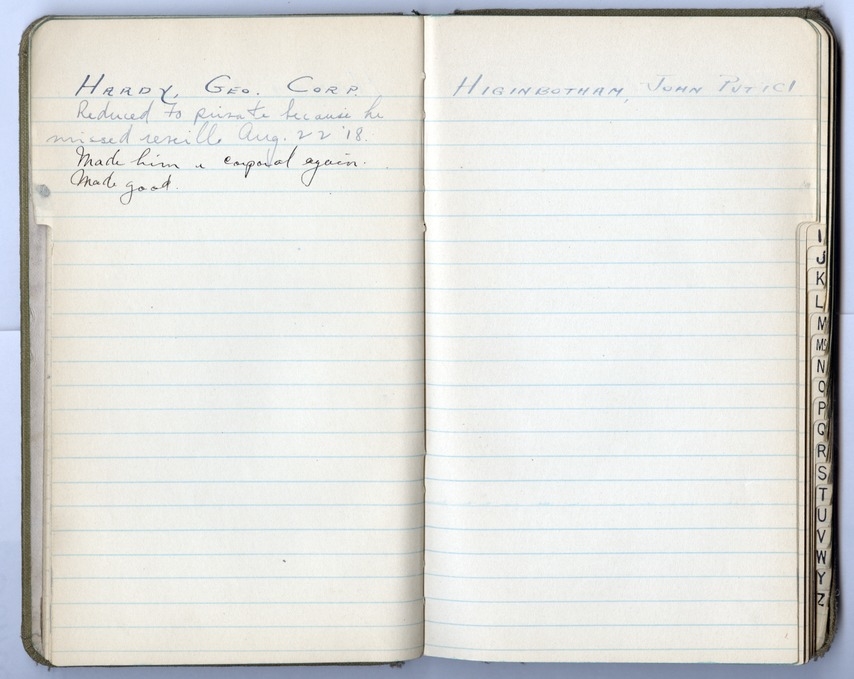 HARDY, GEO. CORP.
Reduced to private because he
missed reveille Aug. 22 '18.
Made him a corporal again.
Made good.
HIGINBOTHAM, JOHN PVT 1CL
I
J
K
L
M
Mc
N
O
P
Q
R
S
T
U
V
W
Y
Z